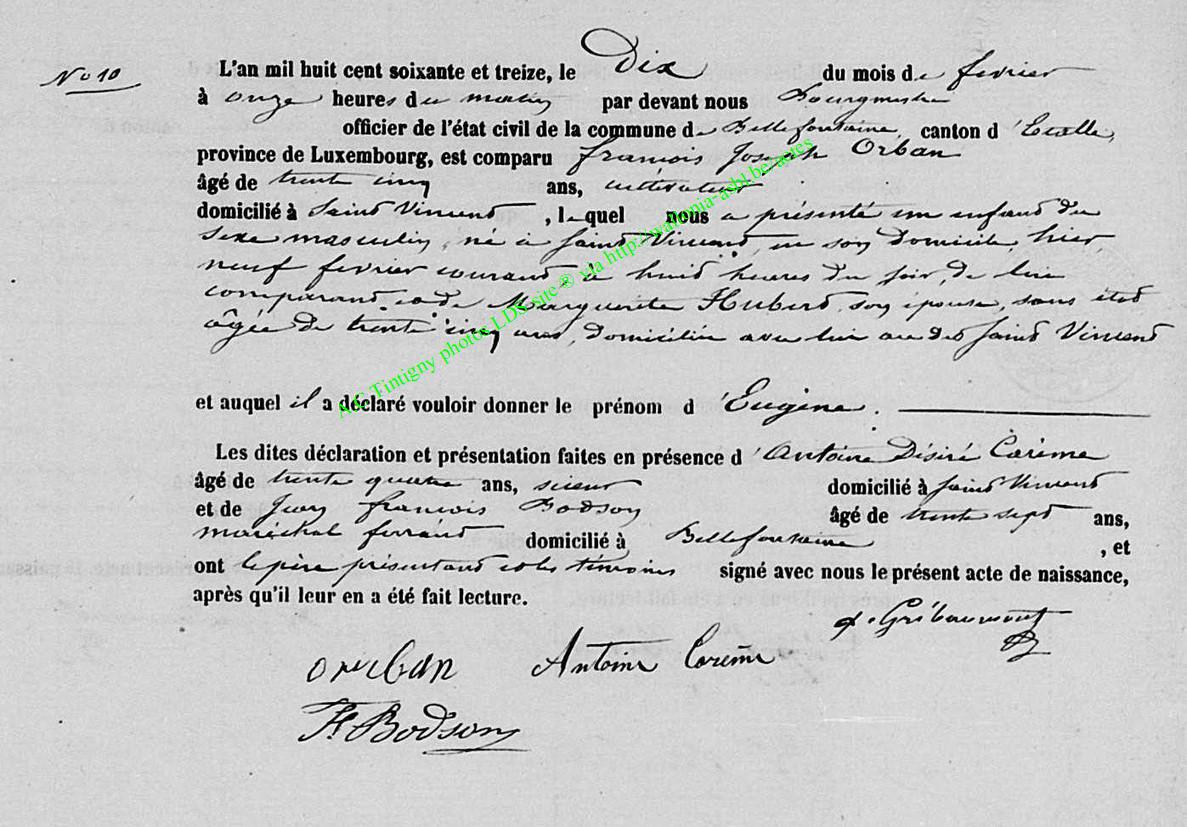 N° 10
L'an mil huit cent soixante et treize, le Dix du mois de fevrier
à onze heures du matin par devant nous Bourgmestre
officier de l'état civil de la commune de Bellefontaine, canton d'Etalle,
province de Luxembourg, est comparu françois Joseph Orban
âgé de trente cinq ans, cultivateur
domicilié à Saint Vincent, lequel nous a présenté un enfant du
sexe masculin, né à Saint Vincent, en son domicile, hier,
neuf fevrier courant, à huit heures du soir, de lui
comparant et de Marguerite Hubert, son épouse, sans état
âgée de trente cinq ans, domiciliée avec lui au dit Saint Vincent
et auquel il a déclaré vouloir donner le prénom d'Eugène.
Les dites déclaration et présentation faites en présence d'Antoine Désiré Carème
âgé de trente quatre ans, scieur domicilié à Saint Vincent
et de Jean françois Bodson âgé de trente sept ans,
maréchal ferrant domicilié à Bellefontaine, et
ont le père présentant et les témoins signé avec nous le présent acte de naissance,
après qu'il leur en a été fait lecture.
Gribaumont
orban Antoine Carême
F. Bodson
A.C Tintigny photos LDS site ® via http://wallonia-asbl.be/actes